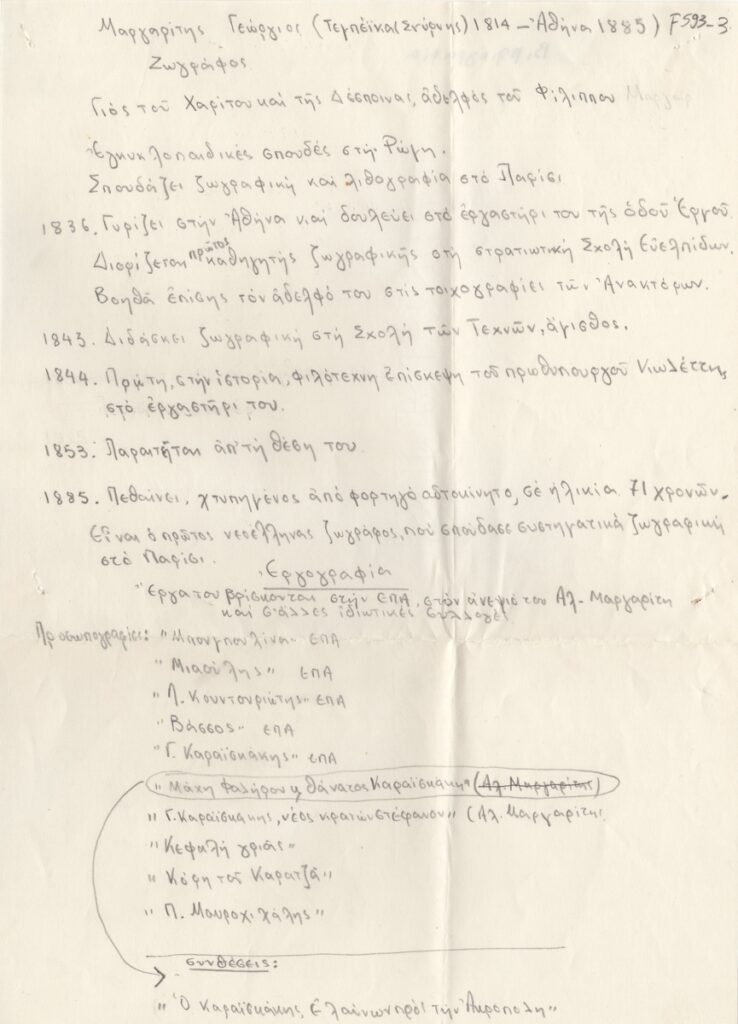 Μαργαρίτης Γεώργιος (Τεμπέϊκα (Σνύρνης) 1814 – Ἀθήνα 1885) F593-3
Ζωγράφος
Γιός τοῦ Χαρίτου καί τῆς Δέσποινας, ἀδελφός τοῦ Φίλιππου
Ἐγκυκλοπαιδικές σπουδές στή Ρώμη.
Σπουδάζει ζωγραφική καί λιθογραφία στό Παρίσι
1836. Γυρίζει στήν Ἀθήνα καί δουλεύει στό ἐργαστήρι του τῆς ὁδοῦ Ἑρμοῦ.
Διορίζεται πρῶτος καθηγητής ζωγραφικῆς στή στρατιωτική Σχολή Εὐελπίδων.
Βοηθᾶ ἐπίσης τόν ἀδελφό του στίς τοιχογραφίες τῶν Ἀνακτόρων.
1843. Διδάσκει ζωγραφική στή Σχολή τῶν Τεχνῶν, ἄμισθος.
1844. Πρώτη, στήν ἱστορία, φιλότεχνη ἐπίσκεψη τοῦ πρωθυπουργοῦ Κωλέττη,
στό ἐργαστήρι του.
1853. Παραιτῆται ἀπ' τή θέση του
1885. Πεθαίνει, χτυπημένος ἀπό φορτηγό αὐτοκίνητο, σέ ἡλικία 71 χρονῶν.
Εἶναι ὁ πρῶτος νεοέλληνας ζωγράφος, πού σπούδασε συστηματικά ζωγραφική
στό Παρίσι.
Ἐργογραφία
Ἔργα του βρίσκονται στήν ΕΠΑ, στόν ἀνεψιό του Αλ. Μαργαρίτη
καί σ' ἄλλες ἰδιωτικές συλλογές
Προσωπογραφίες: "Μπουμπουλίνα" ΕΠΑ
"Μιαούλης" ΕΠΑ
"Λ. Κουντουριώτης" ΕΠΑ
"Βάσσος" ΕΠΑ
"Γ. Καραϊσκάκης" ΕΠΑ
"Μάχη Φαλήρου ἤ θάνατος Καραϊσκάκη" (Αλ. Μαργαρίτης)
"Γ. Καραϊσκάκης, νέος κρατῶν στέφανον" (Αλ. Μαργαρίτης
"Κεφαλή γριᾶς"
"Κόρη τοῦ Καρατζᾶ"
"Π. Μαυρομιχάλης"
συνθέσεις:
"Ὁ Καραϊσκάκης ἐλαύνων πρός τήν Ἀκρόπολη"